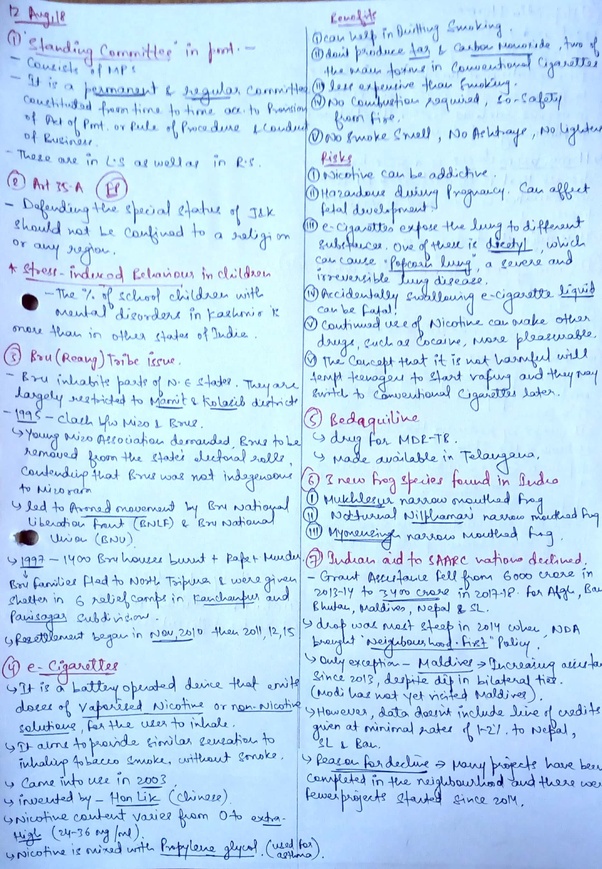 12 Aug,18
① "Standing Committee" in parl. -
- Consists of MPs
- It is a permanent & regular Committee
constituted from time to time acc. to Provision
of Act of Parl. or Rule of Procedure & Conduct
of Business.
- These are in L.S as well as in R.S.
② Art 35-A
- Defending the special status of J&K
should not be confined to a religion
or any region.
* Stress-induced Behaviour in children
- The % of school children with
mental disorders in Kashmir is
more than in other states of India.
③ Bru (Reang) Tribe issue.
- Bru inhabits parts of N.E States. They are
largely restricted to Mamit & Kolasib districts
- 1995 - Clash b/w Mizo & Brus.
↳ Young Mizo Association demanded, Brus to be
removed from the state's electoral rolls,
contending that Brus was not indegenous
to Mizoram
↳ led to Armed movement by Bru National
Liberation Front (BNLF) & Bru National
Union (BNU)
↳ 1997 - 1400 Bru houses burnt + Rape + Murder
Bru families fled to North Tripura & were given
shelter in 6 relief camps in Kanchanpur and
Panisagar Subdivision.
↳ Resettlement began in Nov, 2010 then 2011, 12, 15
④ e-Cigarettes
↳ It is a battery operated device that emits
doses of vaporised Nicotine or non-Nicotine
solutions, for the user to inhale.
↳ It aims to provide similar sensation to
inhaling tobacco smoke, without smoke.
↳ Came into use in 2003
↳ invented by - Hon Lik (Chinese).
↳ Nicotine content varies from 0 to extra-
High (24-36 mg/ml).
↳ Nicotine is mixed with Propylene glycol. (used for
asthma)
Benefits
① can help in Quitting Smoking.
② don't produce tar & Carbon Monoxide, two of
the main toxins in Conventional Cigarettes
③ less expensive than smoking.
④ No Combustion required, so-Safety
from fire.
⑤ No smoke smell, No Ashtrays, No lighters
Risks
① Nicotine can be addictive.
② Hazardous during Pregnancy. Can affect
fetal development.
③ e-Cigarettes expose the lung to different
substance. One of these is dicetyl, which
can cause "Popcorn lung", a severe and
irreversible lung disease.
④ Accidentally swallowing e-cigarette liquid
can be fatal!
⑤ Continued use of Nicotine can make other
drugs, such as Cocaine, more pleasurable.
⑥ The Concept that it is not harmful will
tempt teenagers to start vaping and they may
switch to Conventional Cigarettes later.
⑤ Bedaquiline
↳ drug for MDR-TB.
↳ Made available in Telangana.
⑥ 3 new frog species found in India
① Mukhlesur narrow mouthed frog
② Nilphamari narrow mouthed frog
③ Mymensingh narrow mouthed frog.
⑦ Indian aid to SAARC nations declined.
- Grant Assistance fell from 6000 crore in
2013-14 to 3400 crore in 2017-18. for Afgh, Ban
Bhutan, Maldives, Nepal & SL.
↳ drop was most steep in 2014 when, NDA
brought "Neighbourhood-First" Policy.
↳ Only exception - Maldives → Increasing assistan
since 2013, despite dip in bilateral ties.
(Modi has not yet visited Maldives).
↳ However, data doesn't include line of credits
given at minimal rates of 1-2%. to Nepal,
SL & Ban.
↳ Reason for decline → Many projects have been
completed in the neighbourhood and there were
fewer projects started since 2014.